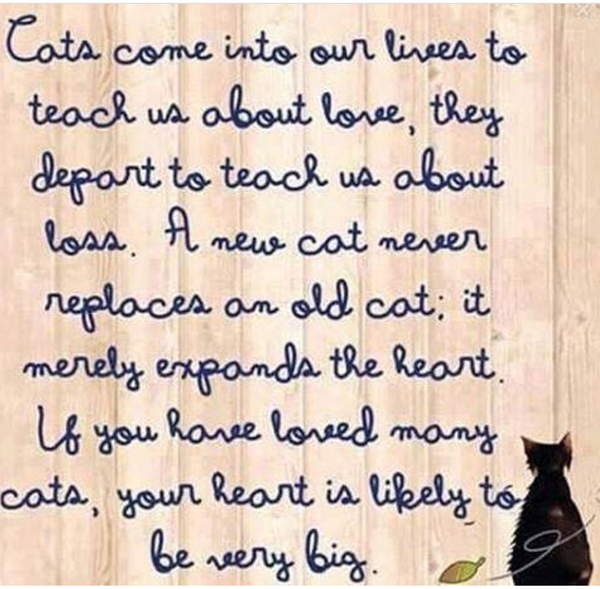 Cats come into our lives to
teach us about love, they
depart to teach us about
loss. A new cat never
replaces an old cat; it
merely expands the heart.
If you have loved many
cats, your heart is likely to
be very big.